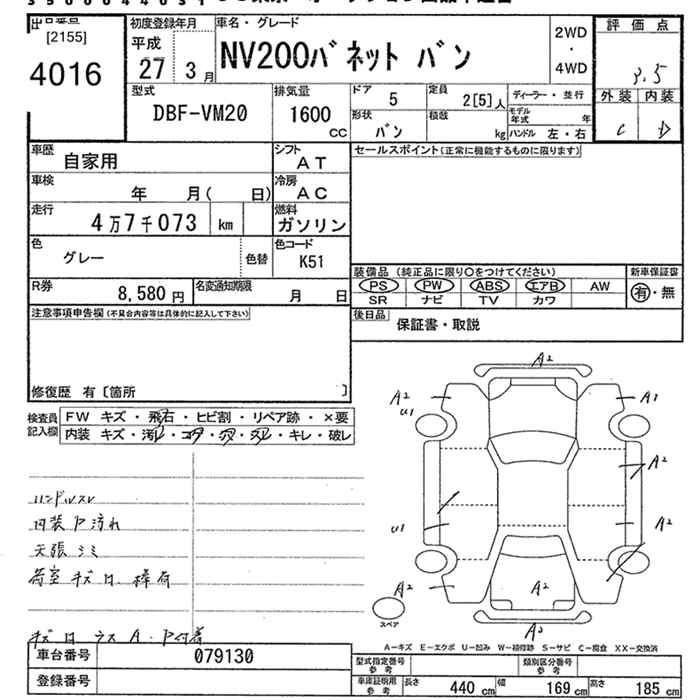 [2155]
4016
初度登録年月
平成
27 3月
車名・グレード
NV200バネット バン
2WD
・
4WD
評価点
3.5
外装 内装
C D
型式
DBF-VM20
排気量
1600
CC
ドア
5
定員
2[5]人
ディーラー・並行
形状
バン
積載
kg
モデル年式 年
ハンドル 左・右
車歴
自家用
シフト
AT
セールスポイント(正常に機能するものに限ります)
車検
年 月( 日)
冷房
AC
走行
4万7千073 km
燃料
ガソリン
色
グレー
色替
色コード
K51
装備品 (純正品に限り○をつけてください)
新車保証書
PS PW ABS エアB AW
有・無
SR ナビ TV カワ
R券
8,580円
名変通知期限
月 日
注意事項申告欄(不具合内容等は具体的に記入して下さい)
後日品
保証書・取説
修復歴 有〔箇所 〕
検査員記入欄
FW キズ・飛石・ヒビ割・リペア跡・×要
内装 キズ・汚れ・コゲ・穴・スレ・キレ・破レ
ハンドルスレ
内装P汚れ
天張シミ
荷室キズ凹
A2
A2
U1
A1
A2
U1
A2
A2
A2
A2
スペア
A-キズ E-エクボ U-凹み W-補修跡 S-サビ C-腐食 XX-交換済
車台番号
079130
登録番号
型式指定番号
参考
類別区分番号
参考
車庫証明用
参考
長さ 440cm
幅 169cm
高さ 185cm